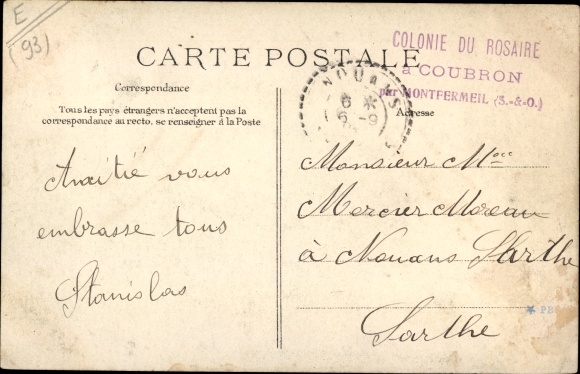 E
(93)
CARTE POSTALE
COLONIE DU ROSAIRE
à COUBRON
par MONTFERMEIL (S.-&-O.)
NOUANS
6
6 -9
Correspondance
Tous les pays étrangers n'acceptent pas la
correspondance au recto, se renseigner à la Poste
Adresse
Amitié vous
embrasse tous
Stanislas
Monsieur Mme
Mercier Moreau
à Nouans Sarthe
Sarthe